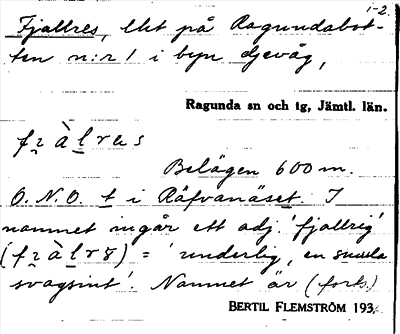 1-2.
Fjallres, lht på Ragundabot-
ten n:r 1 i byn
Ragunda sn och tg, Jämtl. län.
Belägen 600 m.
O.N.O. t i Räfvanäset. I
namnet ingår ett adj. 'fjallrig'
= 'underlig, en smula
svagsint'. Namnet är (forts.)
BERTIL FLEMSTRÖM 193